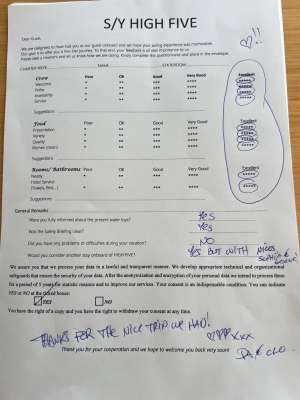 S/Y HIGH FIVE
Dear Guest,
We are delighted to have had you as our guest onboard and we hope your sailing experience was memorable.
Our goal is to offer you a five star journey. To that end, your feedback is of vital importance to us.
Please take a moment and let us know how we are doing. Kindly complete the questionnaire and place in the envelope.
!!
Crew Poor OK Good Very Good Excellent
Welcome * ** *** **** *****
Polite * ** *** **** *****
Availability * ** *** **** *****
Service * ** *** **** *****
Suggestions
Food Poor OK Good Very Good Excellent
Presentation * ** *** **** *****
Variety * ** *** **** *****
Quality * ** *** **** *****
Portion (size) * ** *** **** *****
Suggestions
Rooms/ Bathrooms Poor OK Good Very Good Excellent
Facility * ** *** **** *****
Hotel Service * ** *** **** *****
(Towels, Bed...)
Suggestions
General Remarks
Were you fully informed about the present water toys? YES
Was the Safety Briefing clear? YES
Did you have any problems or difficulties during your vacation? NO
Would you consider another stay onboard of HIGH FIVE? YES BUT WITH
We assure you that we process your data in a lawful and transparent manner. We develop appropriate technical and organizational
safeguards that ensure the security of your data. After the anonymization and encryption of your personal data we intend to process them
for a period of 5 years for statistic reasons and to improve our services. Your consent is an indispensable condition. You can indicate
YES or NO at the ticked boxes:
YES NO
You have the right of a copy and you have the right to withdraw your consent at any time.
THANKS FOR THE NICE TRIP WE HAD! XXX
Thank you for your cooperation and we hope to welcome you back very soon!